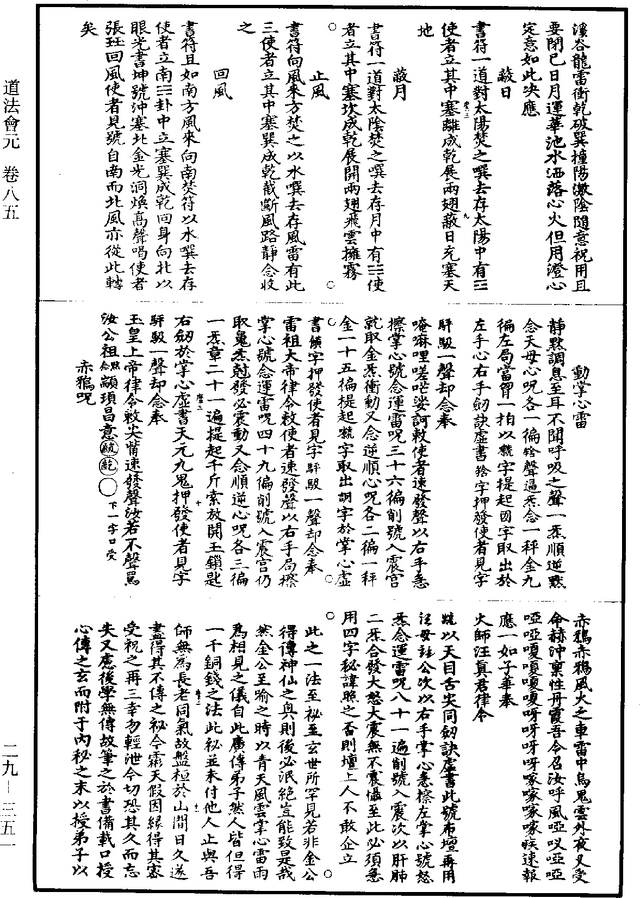 溪谷龍雷衝乾破巽撞陽激陰隨意祝用且
要閉巳日月運華池水洒落心火但用澄心
定意如此吷應
蔽日
書符一道對太陽焚之噀去存太陽中有三
使者立其中塞離成乾展兩翅蔽日充塞天
地
蔽月
書符一道對太陰焚之噀去存月中有三使
者立其中塞坎成乾展開兩翅飛雲擁霧
止風
書符向風來方焚之以水噀去存風雷有此
三使者立其中塞巽成乾截斷風路靜念收
之
回風
書符且如南方風來向南焚符以水噀去存
使者立南三卦中立塞巽成乾回身向北以
眼光書坤號沖塞北金光洞煥高聲喝使者
張珏回風使者見號自南而北風亦從此轉
矣
動掌心雷
靜默調息至耳不聞呼吸之聲一炁順逆默
念天母心呪各一徧 聲過炁念一秤金九
徧左局當胷一拍以 字提起 字取出於
左手心右手劒訣虛書 字押發使者見字
馯馺一聲却念奉
唵嘛哩嗟 娑訶敕使者速發聲以右手急
擦掌心號念運雷呪三十六徧削號入震宮
就取金炁衝動又念逆順心呪各二徧一秤
金一十五徧提起 字取出 字於掌心虛
書 字押發使者見字馯馺一聲却念奉
雷祖大帝律令敕使者速發聲以右手局擦
掌心號念運雷呪四十九徧削號入震宮仍
取鬼炁 發必震動又念順逆心呪各三徧
一炁章二十一遍提起千斤索放開玉鎖匙
右劒於掌心虛書天元九鬼押發使者見字
馯馺一聲却念奉
玉皇上帝律令敕 速發聲汝若不聲罵
汝公祖 顓頊昌意 下一字口受
赤鴉呪
赤鴉赤鴉風火之車雷中烏鬼雲外夜叉受
命赫沖稟性丹霞吾今召汝呼風啞吹啞啞
啞啞嗄嗄嗄嗄呀呀呀呀㗇㗇㗇㗇疾速報
應一如子華奉
火師汪真君律令
 以天目舌尖同劒訣虛書此號布壇再用
 公次以右手掌心急擦左掌心號怒
炁念運雷呪八十一遍削號入震次以肝肺
二炁合發大怒大震無不震懾至此必須急
用四字秘諱照之否則壇上人不敢企立
此之一法至祕至玄世所罕見若非金公
得傳神仙之奧則後必泯絕豈能致是哉
然金公至喻之時以青天風雲掌心雷雨
為相見之儀自此廣傳弟子然人皆但得
一千銅錢之法此祕並未付他人止與吾
師無為長老同氣故盤桓於山間日久遂
盡得其不傳之祕今霸天假因緣得其密
受祝之再三幸勿輕泄今切恐其久而忘
失又慮後學無傳故筆之於書備載口授
心傳之玄而附于內祕之末以授弟子以
道法會元 卷八五
二九—三五一